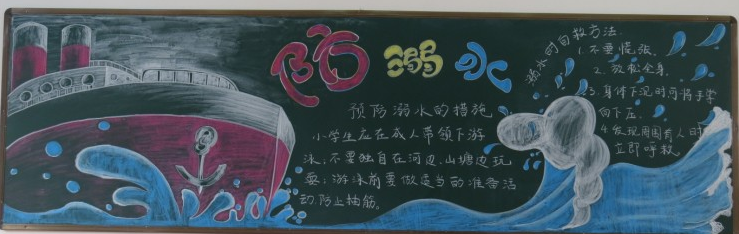 防溺水
预防溺水的措施
小学生应在成人带领下游
泳;不要独自在河边、山塘边玩
耍;游泳前要做适当的准备活
动,防止抽筋。
溺水时自救方法:
1.不要慌张.
2.放松全身.
3.身体下沉时可将手掌
向下压.
4.发现周围有人时
立即呼救.